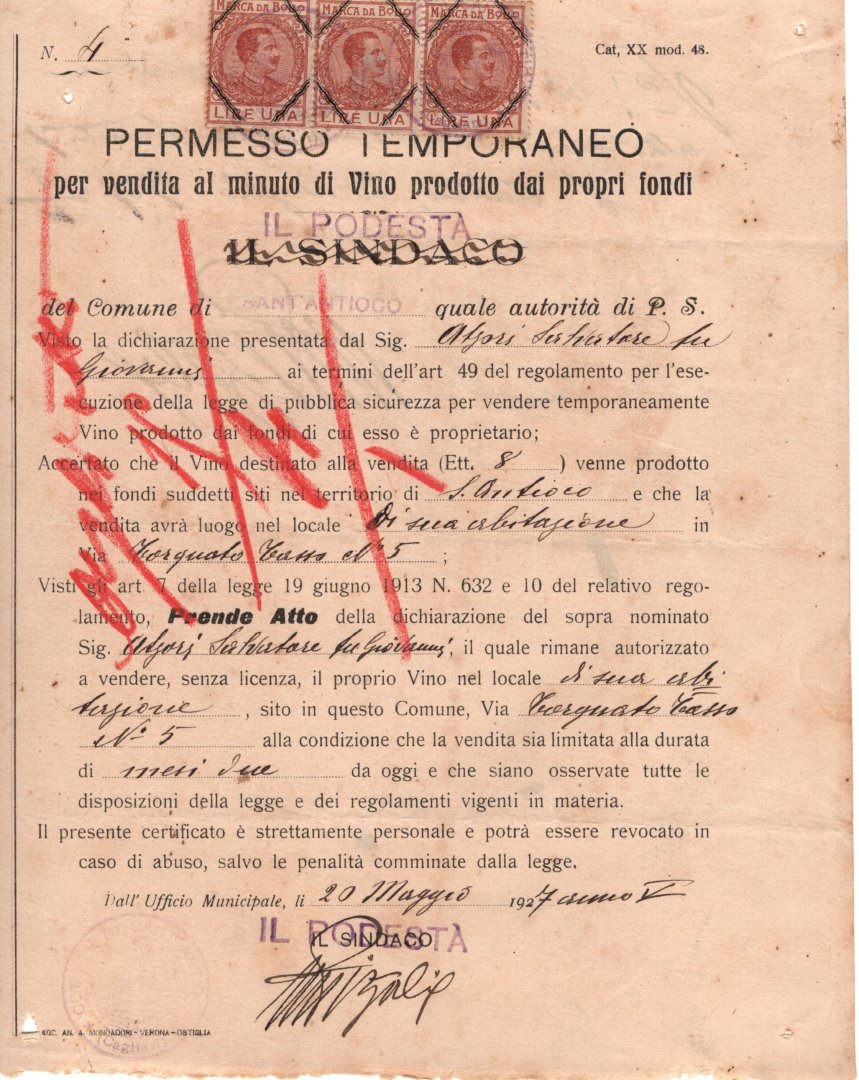 MARCA DA BOLLO MARCA DA BOLLO MARCA DA BOLLO
N. 4 Cat, XX mod. 48.
LIRE UNA LIRE UNA LIRE UNA
PERMESSO TEMPORANEO
per vendita al minuto di Vino prodotto dai propri fondi
IL PODESTÀ
IL SINDACO
del Comune di SANT'ANTIOCO quale autorità di P. S.
Visto la dichiarazione presentata dal Sig. Atzori Salvatore fu
Giovanni ai termini dell'art 49 del regolamento per l'ese-
cuzione della legge di pubblica sicurezza per vendere temporaneamente
Vino prodotto dai fondi di cui esso è proprietario;
Accertato che il Vino destinato alla vendita (Ett. 8 ) venne prodotto
nei fondi suddetti siti nel territorio di S. Antioco e che la
vendita avrà luogo nel locale di sua abitazione in
Via Torquato Tasso N° 5 ;
Visti gli art 7 della legge 19 giugno 1913 N. 632 e 10 del relativo rego-
lamento, Prende Atto della dichiarazione del sopra nominato
Sig. Atzori Salvatore fu Giovanni, il quale rimane autorizzato
a vendere, senza licenza, il proprio Vino nel locale di sua abi
tazione , sito in questo Comune, Via Torquato Tasso
N° 5 alla condizione che la vendita sia limitata alla durata
di mesi due da oggi e che siano osservate tutte le
disposizioni della legge e dei regolamenti vigenti in materia.
Il presente certificato è strettamente personale e potrà essere revocato in
caso di abuso, salvo le penalità comminate dalla legge.
Dall' Ufficio Municipale, li 20 Maggio 1927 anno V
IL PODESTÀ
IL SINDACO
SOC. AN. A. MONDADORI - VERONA - OSTIGLIA